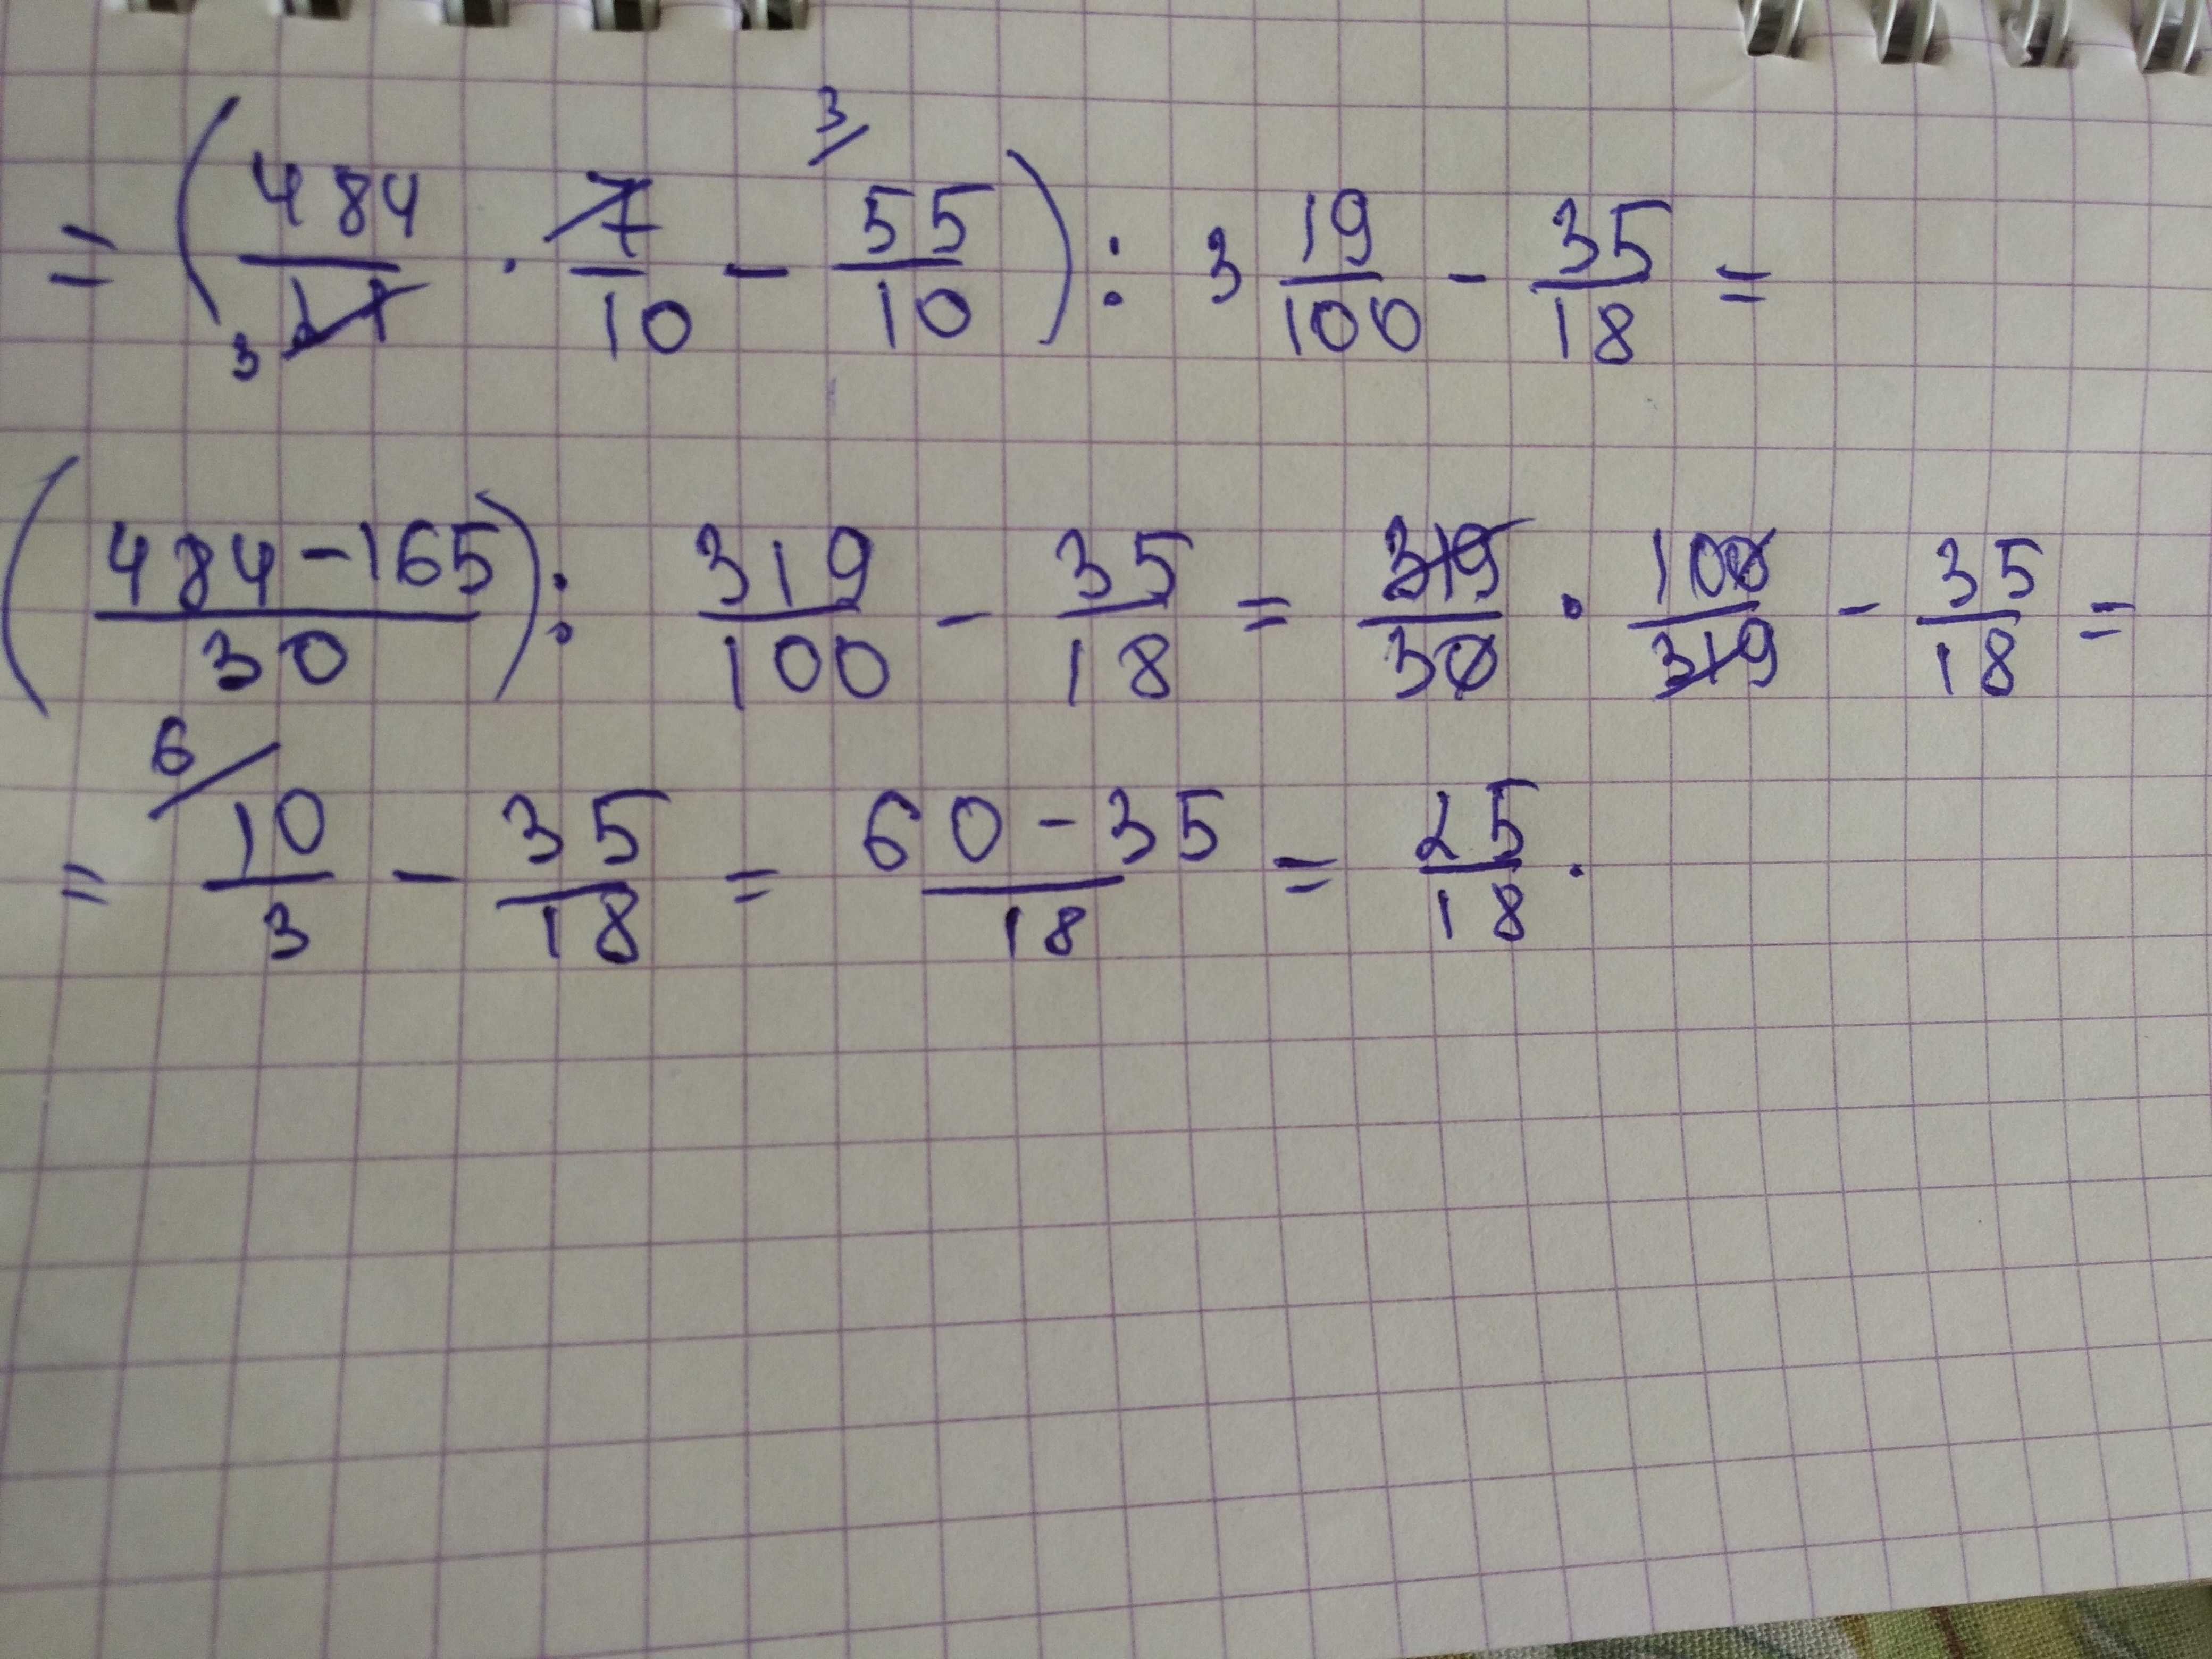 = (484/21 · 7/10 - 3/ 55/10) : 3 19/100 - 35/18 =
3
(484-165/30) : 319/100 - 35/18 = 319/30 · 100/319 - 35/18 =
= 6/ 10/3 - 35/18 = 60-35/18 = 25/18 .